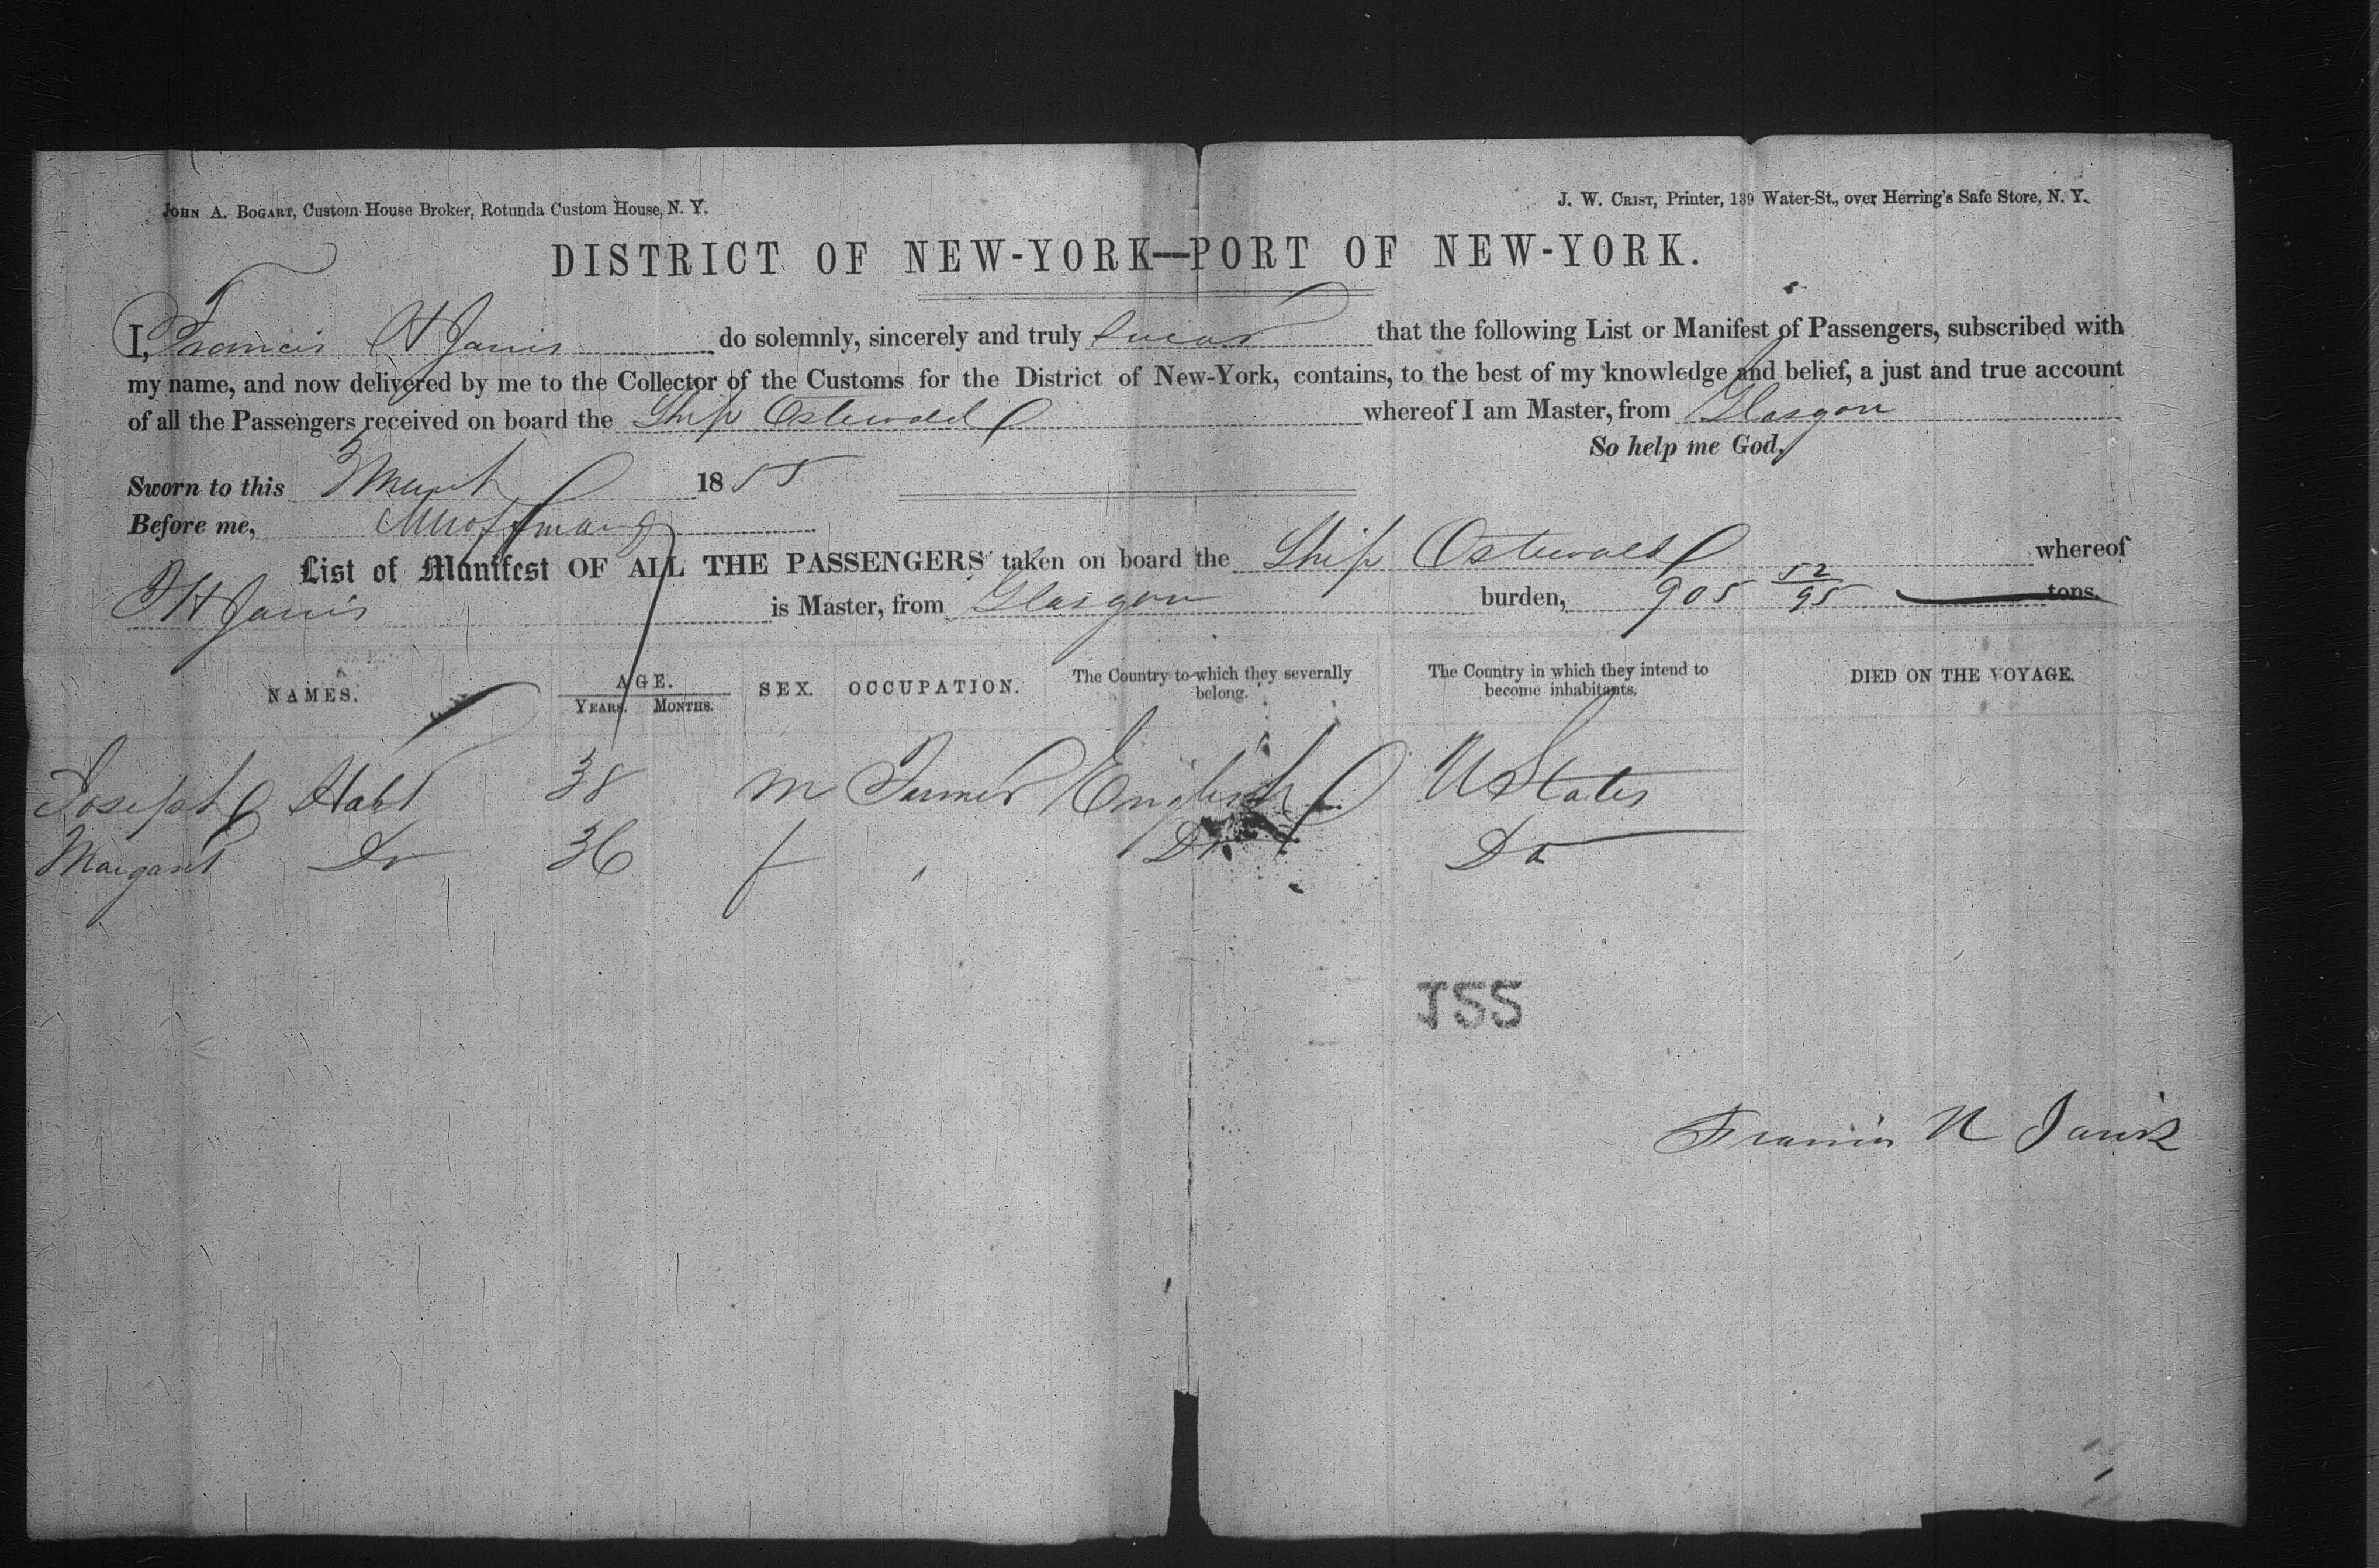 John A. Bogart, Custom House Broker, Rotunda Custom House, N. Y.
J. W. Crist, Printer, 139 Water-St., over Herring's Safe Store, N. Y.
DISTRICT OF NEW-YORK—PORT OF NEW-YORK.
I, Francis H Janis do solemnly, sincerely and truly swear that the following List or Manifest of Passengers, subscribed with
my name, and now delivered by me to the Collector of the Customs for the District of New-York, contains, to the best of my knowledge and belief, a just and true account
of all the Passengers received on board the Ship Ostewald whereof I am Master, from Glasgow
So help me God.
Sworn to this 3 March 1855
Before me,
List of Manifest OF ALL THE PASSENGERS taken on board the Ship Ostewald whereof
F H Janis is Master, from Glasgow burden, 905 52/95 tons.
NAMES. AGE. SEX. OCCUPATION. The Country to which they severally belong. The Country in which they intend to become inhabitants. DIED ON THE VOYAGE.
YEARS. MONTHS.
Joseph 38 M English U States
Margaret Do 36 f " Do Do
155
Francis